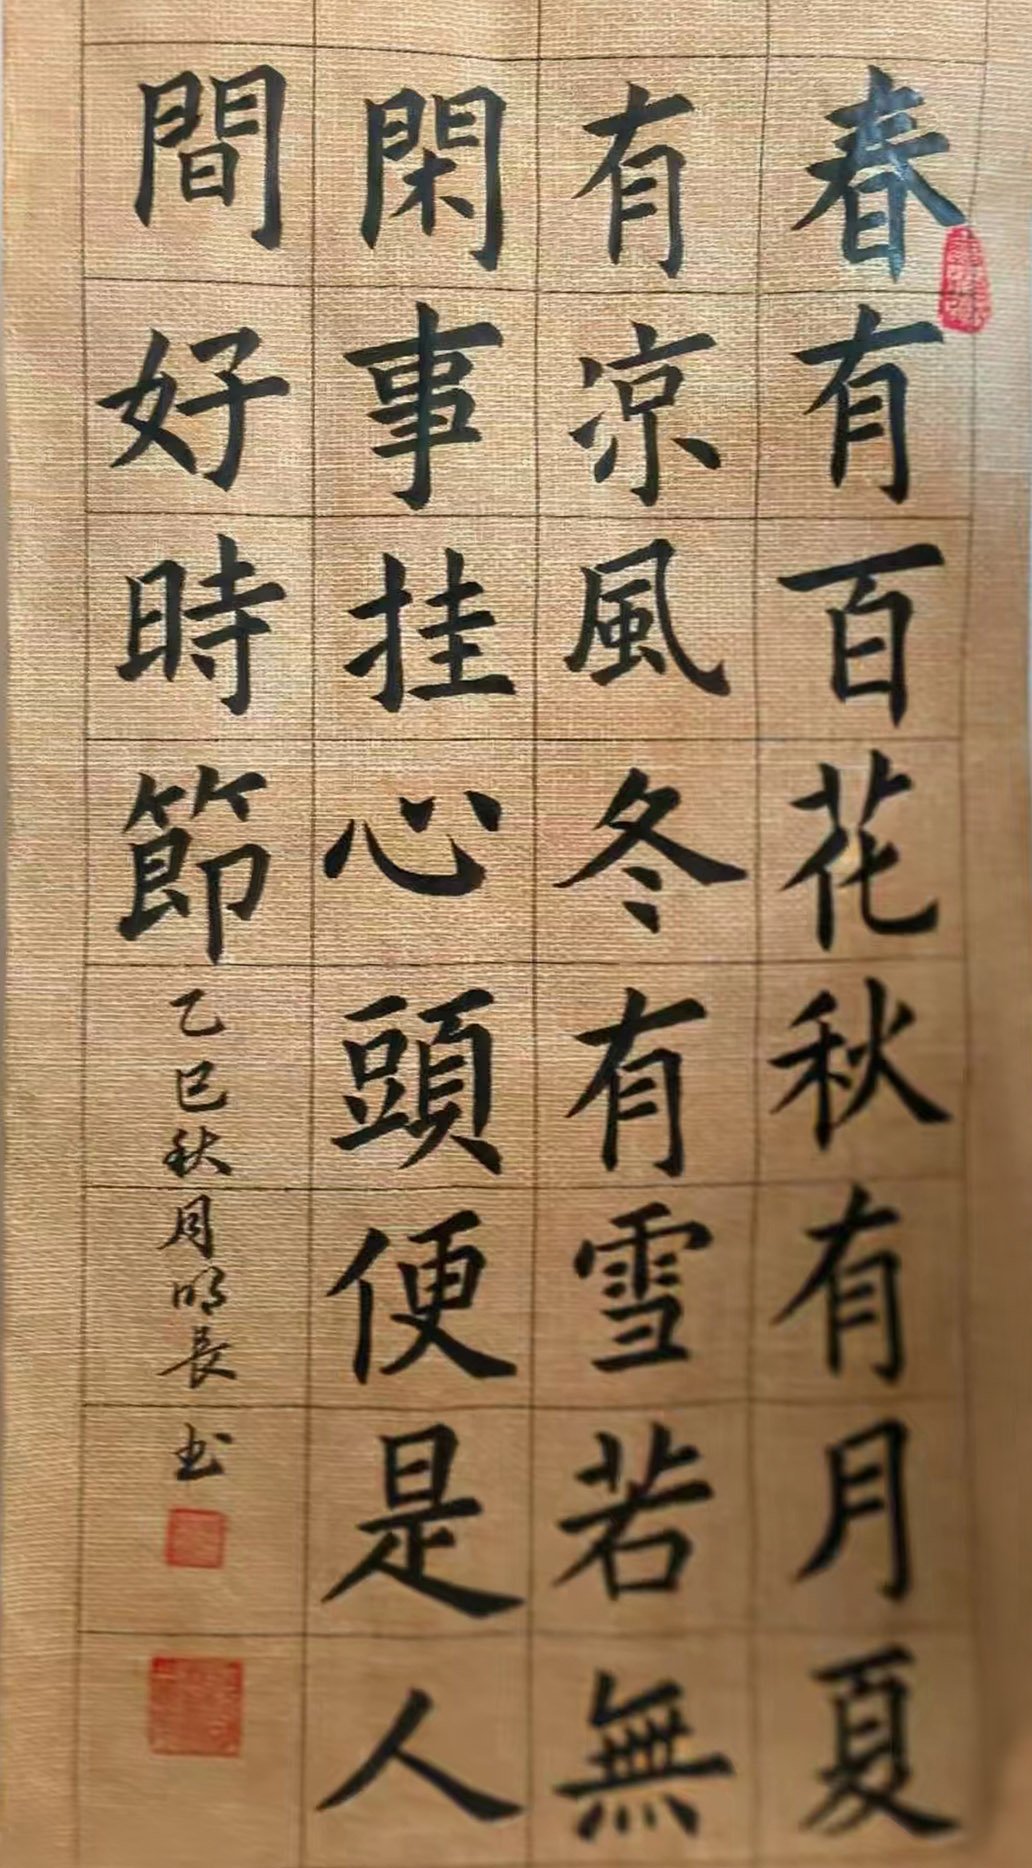 春有百花秋有月夏
有凉風冬有雪若無
閑事挂心頭便是人
間好時節
乙巳秋月明長书